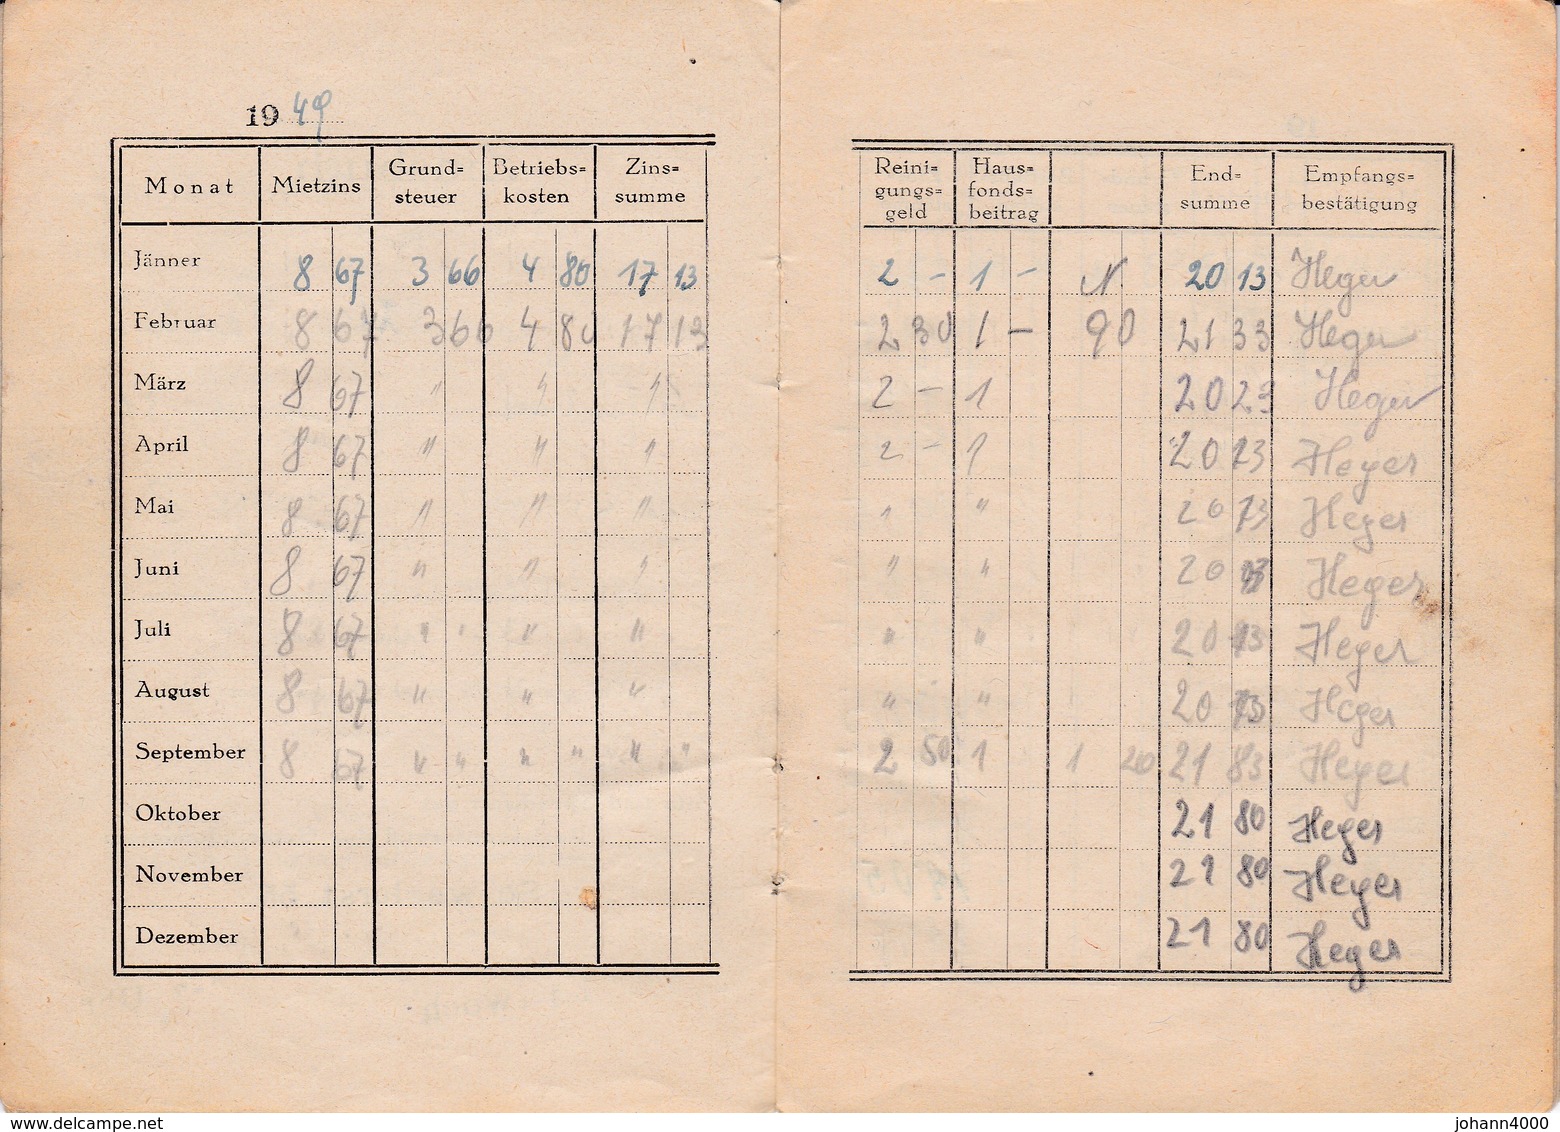 1949
Monat Mietzins Grund=steuer Betriebs=kosten Zins=summe Reini=gungs=geld Haus=fonds=beitrag End=summe Empfangs=bestätigung
Jänner 8 67 3 66 4 80 17 13 2 – 1 – N. 20 13 Heger
Februar 8 67 3 66 4 80 17 13 2 30 1 – 90 21 33 Heger
März 8 67 " " " 2 – 1 20 23 Heger
April 8 67 " " " 2 – 1 20 23 Heger
Mai 8 67 " " " " " 20 13 Heger
Juni 8 67 " " " " " 20 13 Heger
Juli 8 67 " " " " " " 20 13 Heger
August 8 67 " " " " " " 20 13 Heger
September 8 67 " " " " " " 2 50 1 1 20 21 83 Heger
Oktober 21 80 Heger
November 21 80 Heger
Dezember 21 80 Heger
www.delcampe.net
johann4000